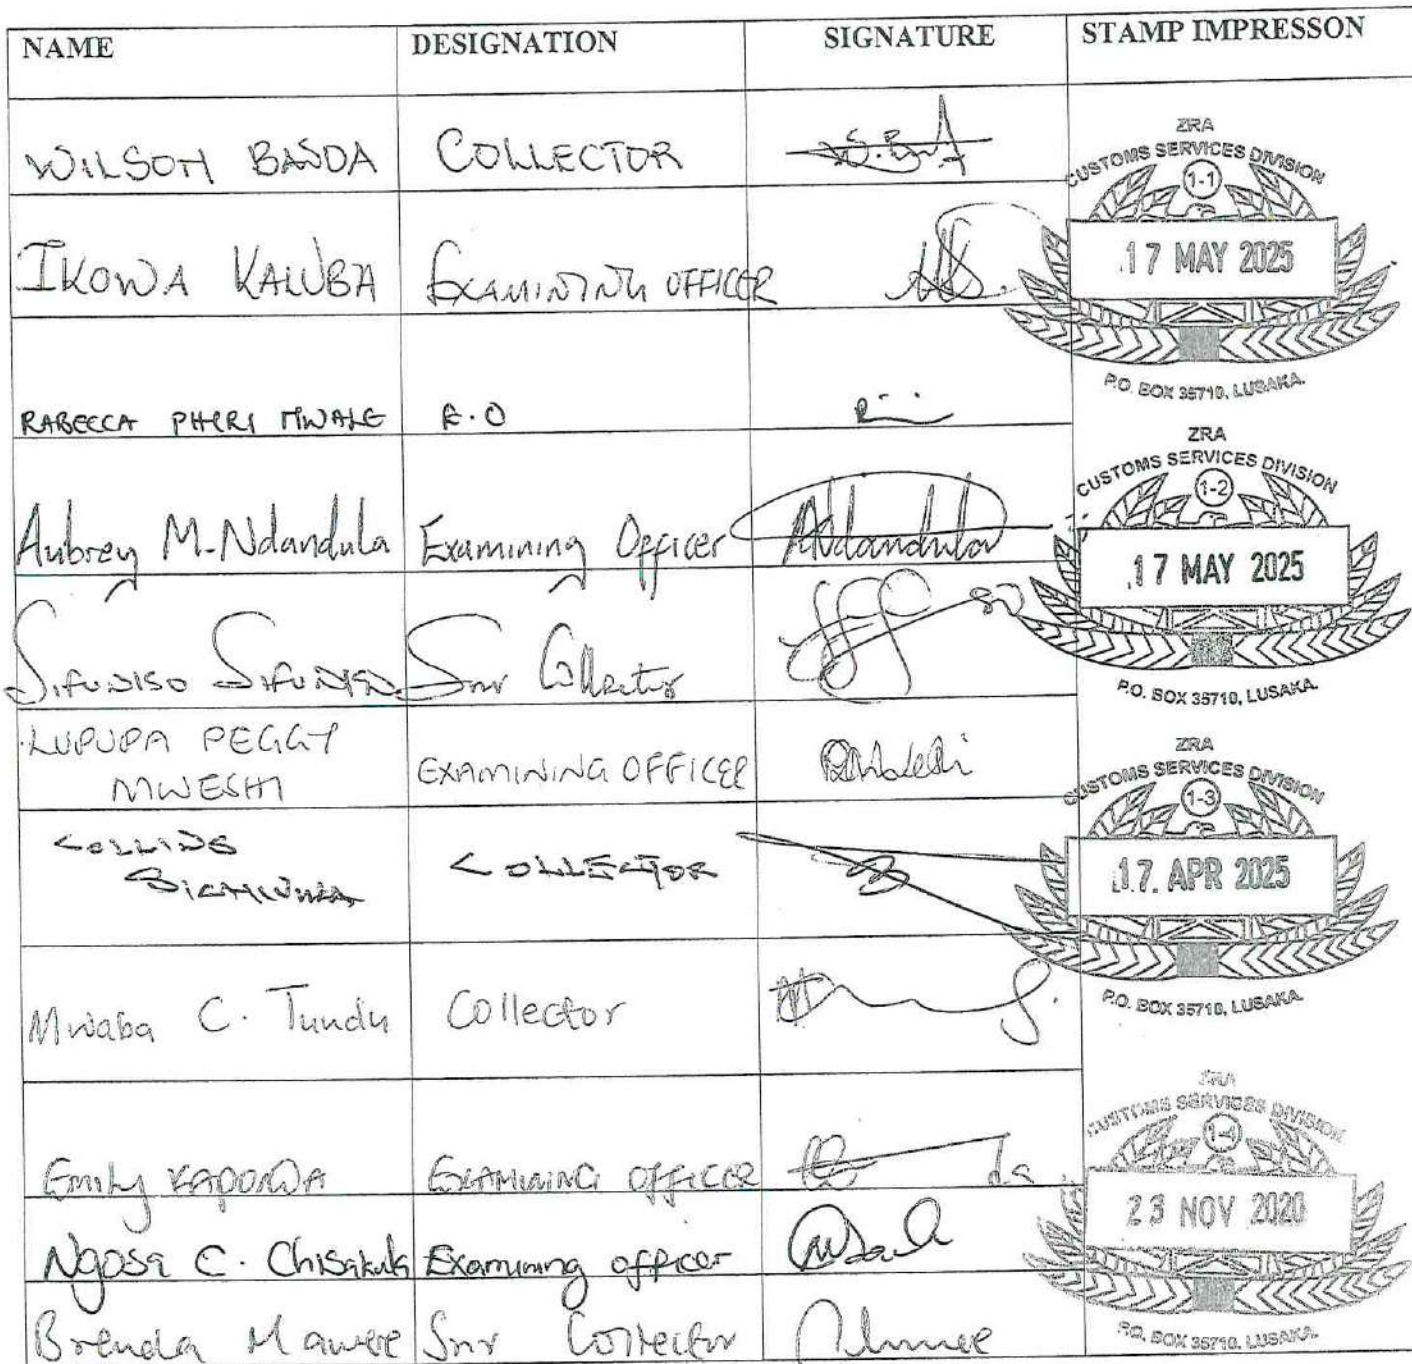 NAME DESIGNATION SIGNATURE STAMP IMPRESSON
WILSON BANDA COLLECTOR
ZRA
CUSTOMS SERVICES DIVISION
1-1
17 MAY 2025
P.O. BOX 35710, LUSAKA.
IKOWA KALUBA EXAMINING OFFICER
RABECCA PHIRI MWALE E.O
ZRA
CUSTOMS SERVICES DIVISION
1-2
17 MAY 2025
P.O. BOX 35710, LUSAKA.
Aubrey M. Ndandula Examining Officer
Sifuniso Snr Collector
LUPUPA PEGGY
MWESHI
EXAMINING OFFICER
ZRA
CUSTOMS SERVICES DIVISION
1-3
17. APR 2025
P.O. BOX 35710, LUSAKA.
COLLINS
COLLECTOR
Mwaba C. Tundu Collector
ZRA
CUSTOMS SERVICES DIVISION
1-4
23 NOV 2020
P.O. BOX 35710, LUSAKA.
Emily KAPONDA EXAMINING OFFICER
Ngosa C. Chisakula Examining officer
Brenda Mawere Snr Collector